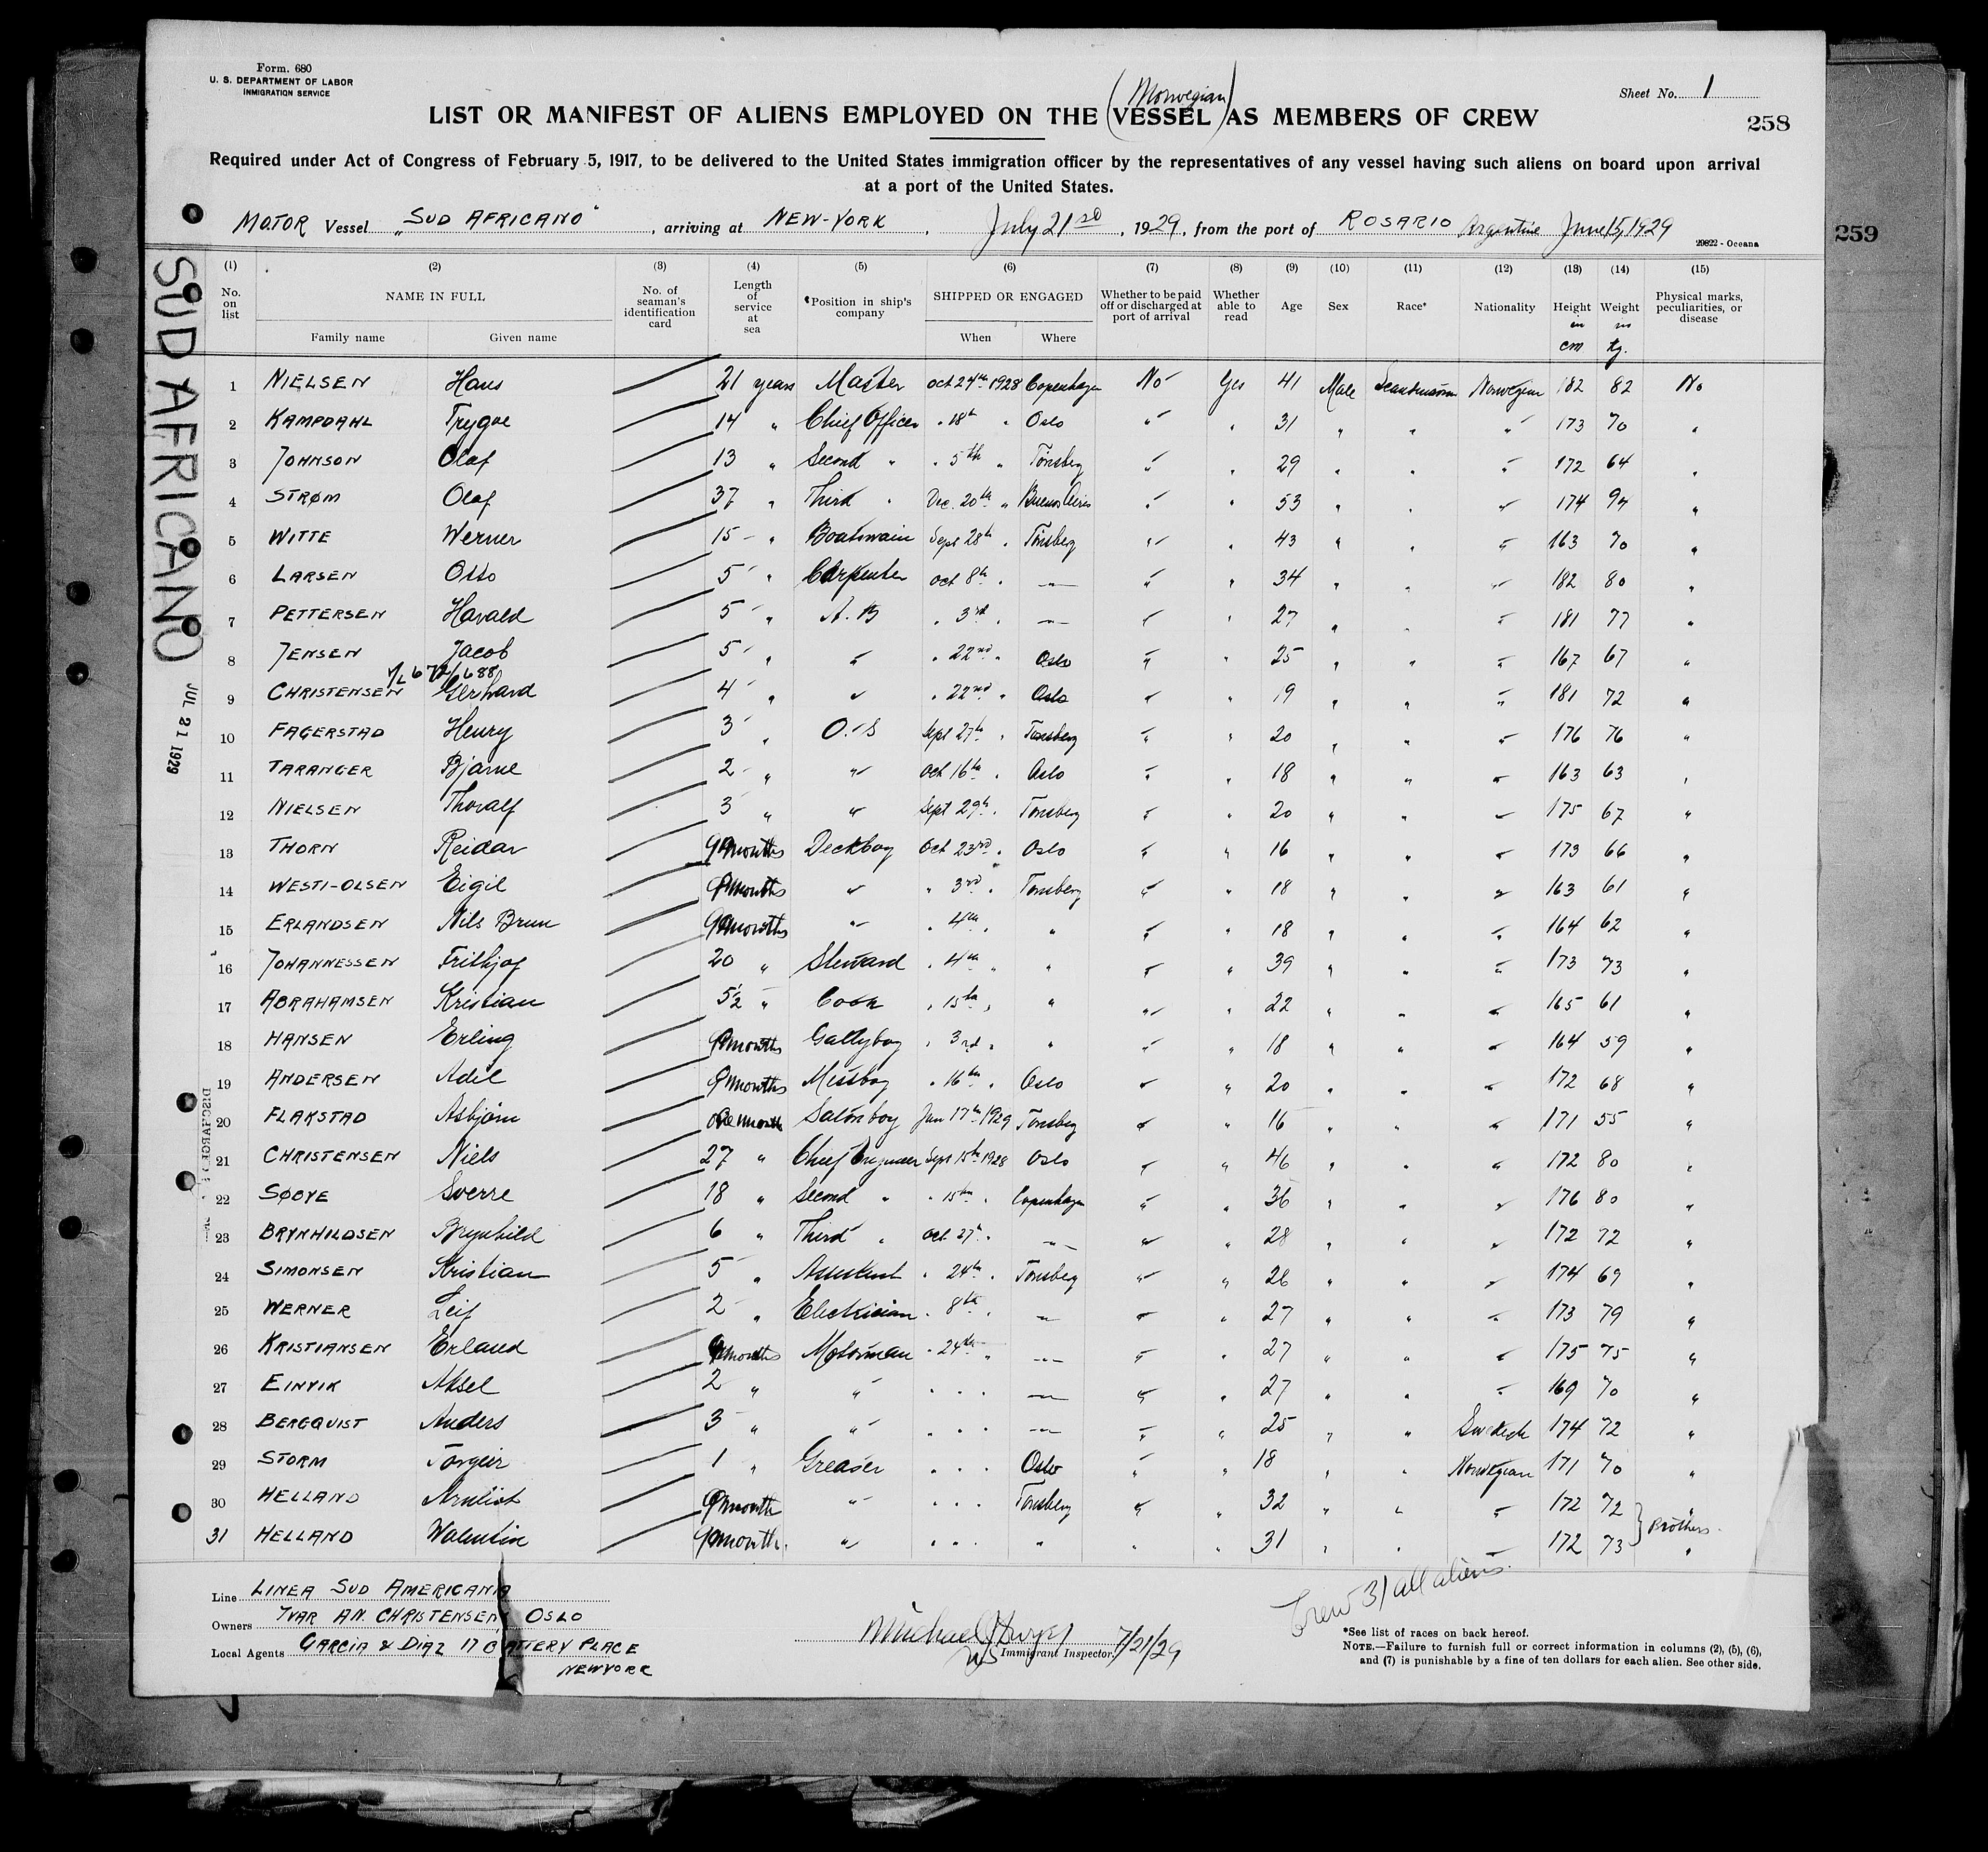 Form. 680
U. S. DEPARTMENT OF LABOR
INMIGRATION SERVICE
Sheet No. 1
(Norwegian)
LIST OR MANIFEST OF ALIENS EMPLOYED ON THE VESSEL AS MEMBERS OF CREW
258
Required under Act of Congress of February 5, 1917, to be delivered to the United States immigration officer by the representatives of any vessel having such aliens on board upon arrival
at a port of the United States.
MOTOR Vessel „SUD AFRICANO", arriving at NEW-YORK, July 21, 1929, from the port of ROSARIO Argentine June 15, 1929
29822 - Oceana
259
SUD AFRICANO
JUL 21 1929
(1) (2) (3) (4) (5) (6) (7) (8) (9) (10) (11) (12) (13) (14) (15)
No. on list NAME IN FULL Family name Given name No. of seaman's identification card Length of service at sea *Position in ship's company SHIPPED OR ENGAGED When Where Whether to be paid off or discharged at port of arrival Whether able to read Age Sex Race* Nationality Height in cm Weight in kg. Physical marks, peculiarities, or disease
1 NIELSEN Hans 21 years Master Oct 24th 1928 Copenhagen No Yes 41 Male Scandinavian Norwegian 182 82 No
2 KAMPDAHL Trygve 14 " Chief Officer " 18th " Oslo " " 31 " " " 173 70 "
3 JOHNSON Olaf 13 " Second " " 5th " Tönsberg " " 29 " " " 172 64 "
4 STRØM Olaf 37 " Third " Dec. 20th " Buenos Aires " " 53 " " " 174 "
5 WITTE Werner 15 " Boatswain Sept 28th " Tönsberg " " 43 " " " 163 70 "
6 LARSEN Otto 5 " Carpenter Oct 8th " " " " 34 " " " 182 80 "
7 PETTERSEN Harald 5 " A.B " 3rd " " " " 27 " " " 181 77 "
8 JENSEN Jacob 5 " " " 22nd " Oslo " " 25 " " " 167 67 "
9 CHRISTENSEN Gerhard 4 " " " 22nd " Oslo " " 19 " " " 181 72 "
10 FAGERSTAD Henry 3 " O.S Sept 27th " Tonsberg " " 20 " " " 176 76 "
11 TARANGER Bjarne 2 " " Oct 16th " Oslo " " 18 " " " 163 63 "
12 NIELSEN Thoralf 3 " " Sept 29th " Tonsberg " " 20 " " " 175 67 "
13 THORN Reidar 9 months Deckboy Oct 23rd " Oslo " " 16 " " " 173 66 "
14 WESTI-OLSEN Eigil 9 months " " 3rd " Tonsberg " " 18 " " " 163 61 "
15 ERLANDSEN Nils Brun 9 months " " 4th " " " " 18 " " " 164 62 "
16 JOHANNESSEN Frithjof 20 " Steward " 4th " " " " 39 " " " 173 73 "
17 ABRAHAMSEN Kristian 5½ " Cook " 15th " " " " 22 " " " 165 61 "
18 HANSEN Erling 9 months Galleyboy " 3rd " " " " 18 " " " 164 59 "
19 ANDERSEN Adil 9 months Messboy " 16th " Oslo " " 20 " " " 172 68 "
20 FLAKSTAD Asbjörn month Salonboy Jan 17th 1929 Tönsberg " " 16 " " " 171 55 "
21 CHRISTENSEN Niels 27 " Chief Engineer Sept 15th 1928 Oslo " " 46 " " " 172 80 "
22 SØOYE Sverre 18 " Second " " 15th " Copenhagen " " 36 " " " 176 80 "
23 BRYNHILDSEN Brynhild 6 " Third " Oct 27th " " " " 28 " " " 172 72 "
24 SIMONSEN Kristian 5 " Assistent " 24th " Tonsberg " " 26 " " " 174 69 "
25 WERNER Leif 2 " Electrician " 8th " " " " 27 " " " 173 79 "
26 KRISTIANSEN Erland 9 months Motorman " 24th " " " " 27 " " " 175 75 "
27 EINVIK Aksel 2 " " " " " " " " 27 " " " 169 70 "
28 BERGQUIST Anders 3 " " " " " " " " 25 " " Swedish 174 72 "
29 STORM Torgeir 1 " Greaser " " " Oslo " " 18 " " Norwegian 171 70 "
30 HELLAND Arnliot 9 month " " " " Tonsberg " " 32 " " " 172 72 "
31 HELLAND Valentin 9 month " " " " " " " 31 " " " 172 73 "
} Brothers
Crew 31 all aliens
Line LINEA SUD AMERICANA
Owners IVAR AN. CHRISTENSEN OSLO
Local Agents GARCIA & DIAZ 17 BATTERY PLACE
NEWYORK
Michael Dwyer 7/21/29
Immigrant Inspector.
*See list of races on back hereof.
NOTE.—Failure to furnish full or correct information in columns (2), (5), (6),
and (7) is punishable by a fine of ten dollars for each alien. See other side.